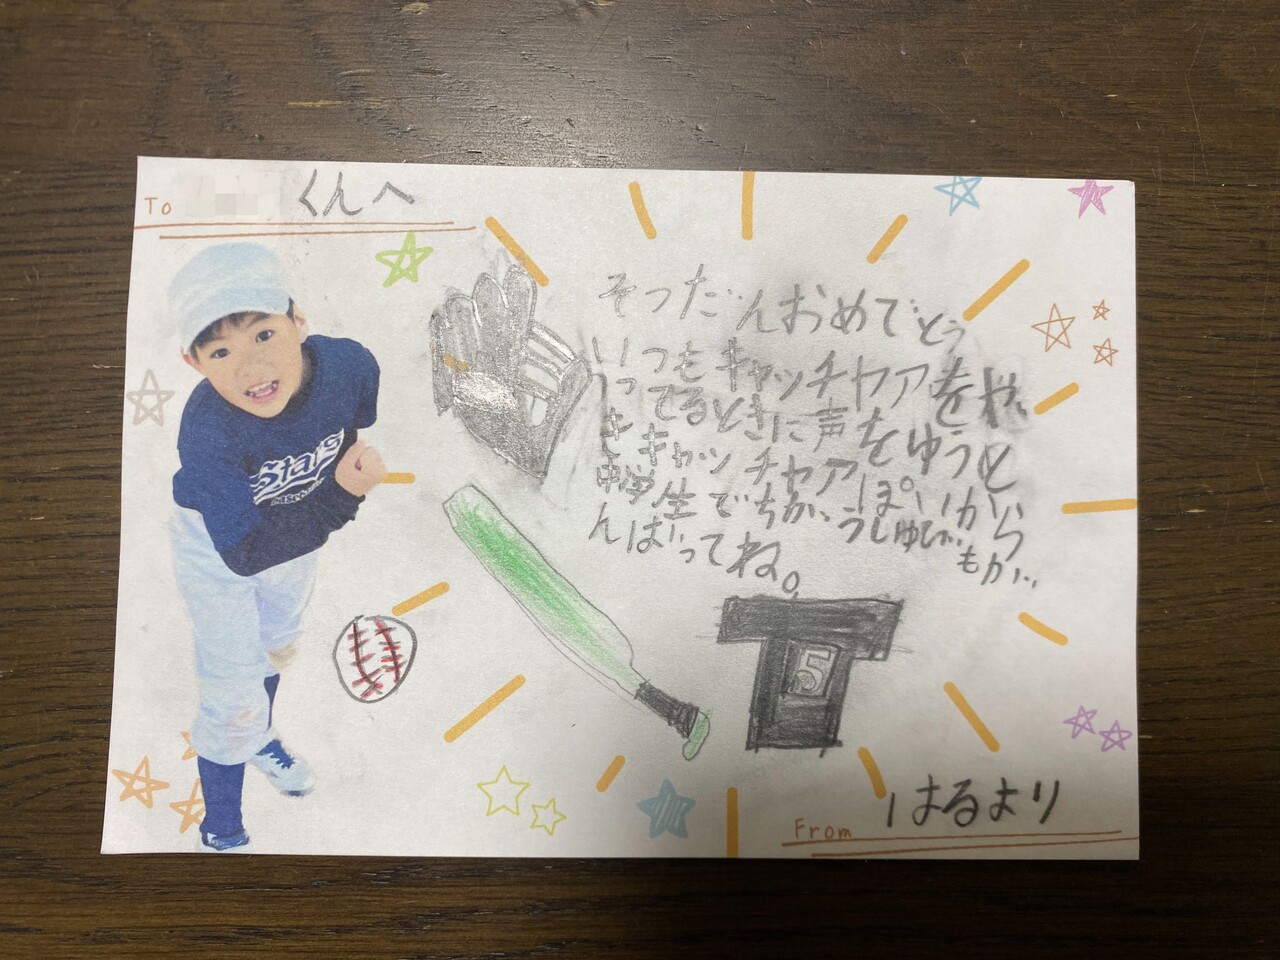 To くんへ
そつだんおめでとう
いつもキャッチャアをや
ってるときに声をゆうと
きキャッチャアぽいから
中学生でちがうしゅじ
もがんばってね。
Stars
Baseball
5
From はるより